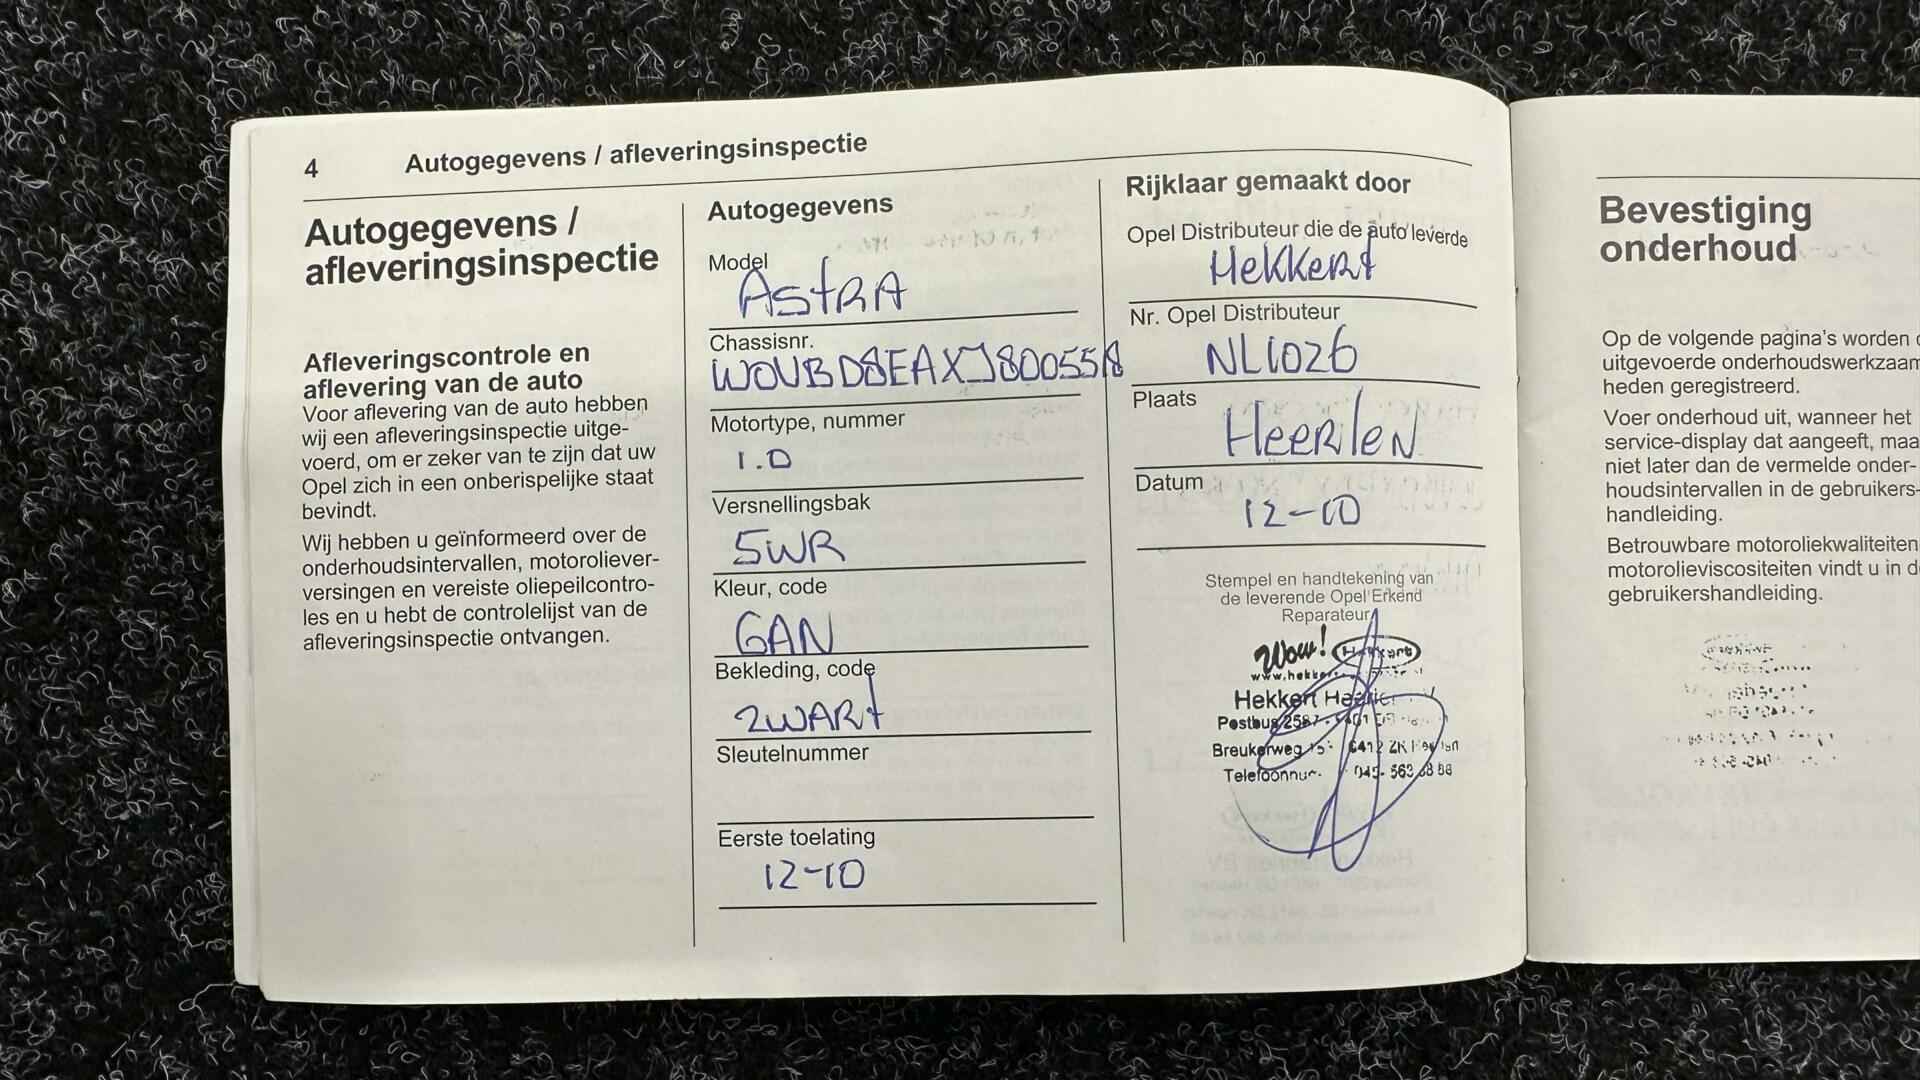 4 Autogegevens / afleveringsinspectie
Autogegevens /
afleveringsinspectie
Afleveringscontrole en
aflevering van de auto
Voor aflevering van de auto hebben
wij een afleveringsinspectie uitge-
voerd, om er zeker van te zijn dat uw
Opel zich in een onberispelijke staat
bevindt.
Wij hebben u geïnformeerd over de
onderhoudsintervallen, motoroliever-
versingen en vereiste oliepeilcontro-
les en u hebt de controlelijst van de
afleveringsinspectie ontvangen.
Autogegevens
Model
AstRA
Chassisnr.
Motortype, nummer
1.0
Versnellingsbak
5WR
Kleur, code
GAN
Bekleding, code
ZWARt
Sleutelnummer
Eerste toelating
12-10
Rijklaar gemaakt door
Opel Distributeur die de auto leverde
Hekkert
Nr. Opel Distributeur
NL1026
Plaats
HeeRleN
Datum
12-10
Stempel en handtekening van
de leverende Opel Erkend
Reparateur
Wow! Hekkert
Hekkert
Postbus
Breukerweg
045-
Bevestiging
onderhoud
Op de volgende pagina's worden
uitgevoerde onderhoudswerkzaam
heden geregistreerd.
Voer onderhoud uit, wanneer het
service-display dat aangeeft, maa
niet later dan de vermelde onder-
houdsintervallen in de gebruikers-
handleiding.
Betrouwbare motoroliekwaliteiten
motorolieviscositeiten vindt u in d
gebruikershandleiding.